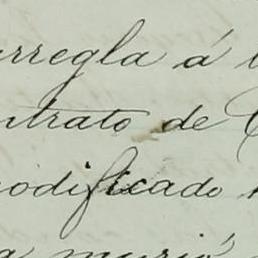 arregla á
ntrato de
modificado
a murió